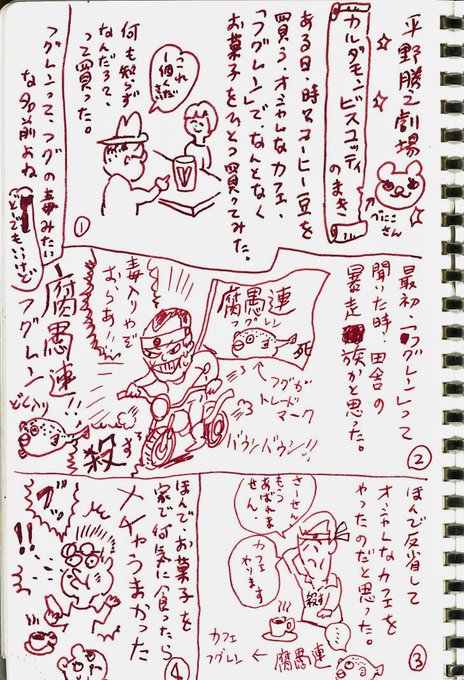 平野勝之劇場
カルダモンビスコッティ
のまき
べにこ
さん
ある日、時々コーヒー豆を
買う、オシャレなカフェ、
「フグレン」でなんとなく
お菓子をひとつ買ってみた。
これ
1個
ください
何も知らず
なんだろ?、
って買った。
①
フグレンって、フグの毒みたい
な名前よね
どーでもいいけど
最初、「フグレン」って
聞いた時、田舎の
暴走族かと思った。
②
腐愚連
フグレン
死
フグが
トレード
マーク
毒入りやぞ
おらあ!!
バウンバウン!!
腐愚連!!
フグレン
どく入り
殺す
ほんで反省して
オシャレなカフェを
やったのだと思った。
③
さーせん
もう
あばれま
せん、
カフェ
やってます
殺す
・・・
カフェ
フグレン
← 腐愚連
ほんで、お菓子を
家で何気に食ったら
メチャうまかった
④
!!